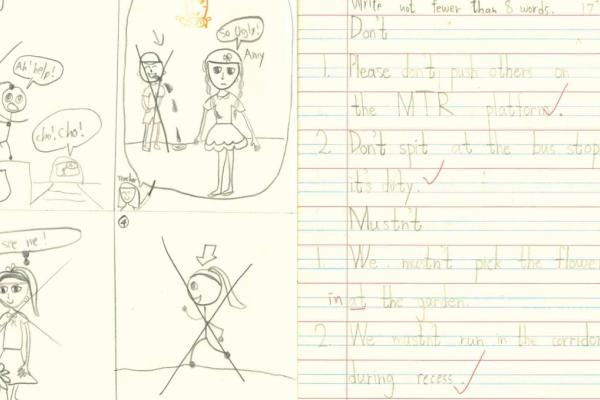 Ah! help!
cho! cho!
So Ugly!
Amy
Teacher
see me!
4
Write not fewer than 8 words. 17
Don't
1. Please don't push others on
the MTR platform.
2. Don't spit at the bus stop
it's dirty.
Mustn't
1. We mustn't pick the flowe
in at the garden.
2. We mustn't run in the corridor
during recess.